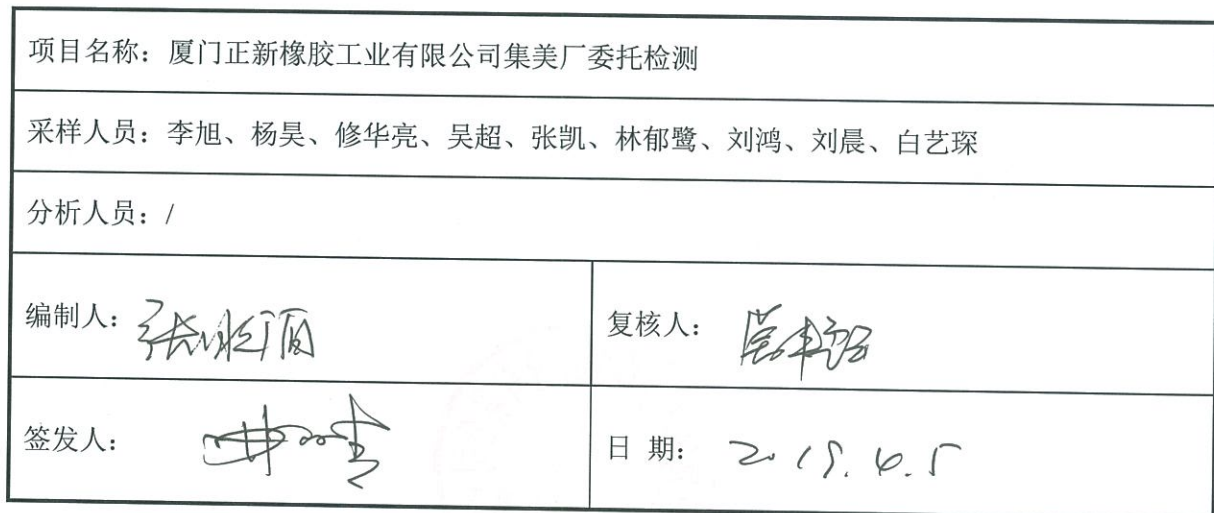 项目名称：厦门正新橡胶工业有限公司集美厂委托检测
采样人员：李旭、杨昊、修华亮、吴超、张凯、林郁鹭、刘鸿、刘晨、白艺琛
分析人员：/
编制人：张
复核人：
签发人：
日 期：2019.4.5